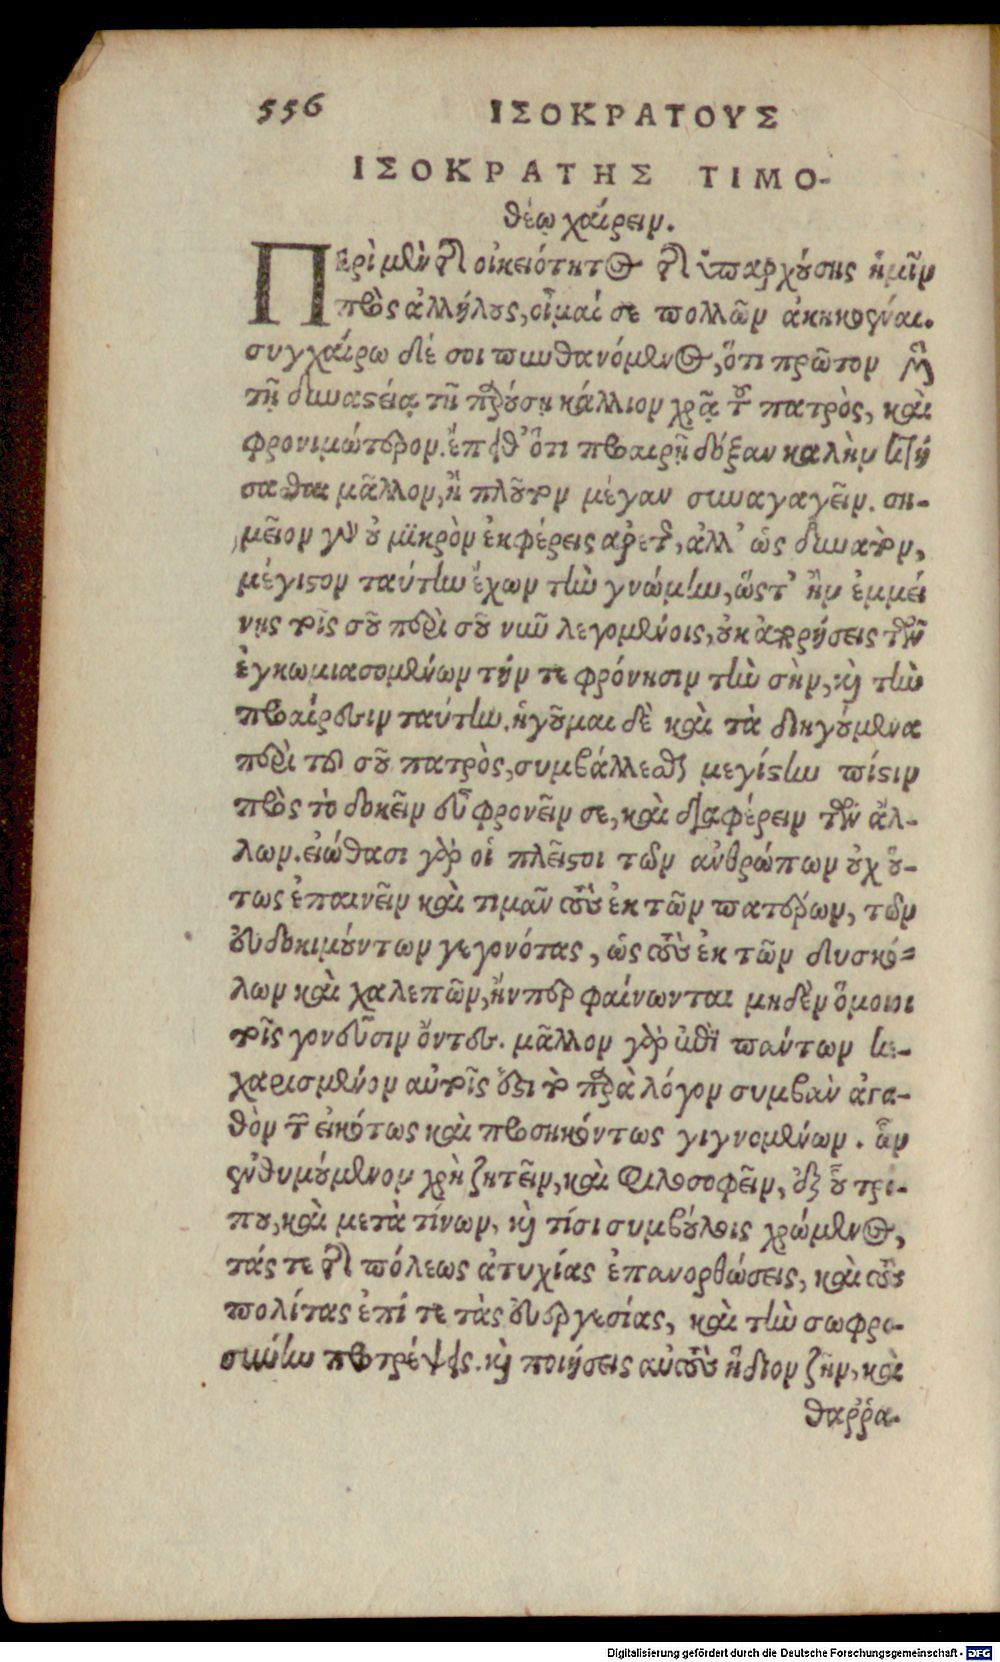 556 ΙΣΟΚΡΑΤΟΥΣ
ΙΣΟΚΡΑΤΗΣ ΤΙΜΟ-
θέῳ χαίρειν.
Περὶ μὲν τῆς οἰκειότητος τῆς ὑπαρχούσης ἡμῖν
πρὸς ἀλλήλους, οἶμαί σε πολλῶν ἀκηκοέναι.
συγχαίρω δέ σοι πυνθανόμενος, ὅτι πρῶτον μὲν
τῇ δυναστείᾳ τῇ παρούσῃ κάλλιον χρᾷ τοῦ πατρὸς, καὶ
φρονιμώτερον. ἔπειθ' ὅτι προαιρῇ δόξαν καλὴν κτή
σασθαι μᾶλλον, ἢ πλοῦτον μέγαν συναγαγεῖν. ση-
μεῖον γὰρ οὐ μικρὸν ἐκφέρεις ἀρετῆς, ἀλλ' ὡς δυνατὸν,
μέγιστον ταύτην ἔχων τὴν γνώμην, ὥστ' ἢν ἐμμεί
νῃς τοῖς σοῦ περὶ σοῦ νῦν λεγομένοις, οὐκ ἀπορήσεις τῶν
ἐγκωμιασομένων τήν τε φρόνησιν τὴν σὴν, καὶ τὴν
προαίρεσιν ταύτην. ἡγοῦμαι δὲ καὶ τὰ διηγούμενα
περὶ τοῦ σοῦ πατρὸς, συμβάλλεσθαι μεγίστην πίστιν
πρὸς τὸ δοκεῖν εὖ φρονεῖν σε, καὶ διαφέρειν τῶν ἄλ-
λων. εἰώθασι γὰρ οἱ πλεῖστοι τῶν ἀνθρώπων οὐχ οὕ-
τως ἐπαινεῖν καὶ τιμᾶν τοὺς ἐκ τῶν πατέρων, τῶν
εὐδοκιμούντων γεγονότας, ὡς τοὺς ἐκ τῶν δυσκό-
λων καὶ χαλεπῶν, ἤνπερ φαίνωνται μηδὲν ὅμοιοι
τοῖς γονεῦσιν ὄντες. μᾶλλον γὰρ ἐπὶ πάντων κε-
χαρισμένον αὐτοῖς ἐστι τὸ παρὰ λόγον συμβὰν ἀγα-
θὸν τῶν εἰκότως καὶ προσηκόντως γιγνομένων. ὧν
ἐνθυμούμενον χρὴ ζητεῖν, καὶ φιλοσοφεῖν, ἐξ οὗ τρό-
που, καὶ μετὰ τίνων, καὶ τίσι συμβούλοις χρώμενος,
τάς τε τῆς πόλεως ἀτυχίας ἐπανορθώσεις, καὶ τοὺς
πολίτας ἐπί τε τὰς εὐεργεσίας, καὶ τὴν σωφρο-
σύνην προτρέψεις. καὶ ποιήσεις αὐτοὺς ἥδιον ζῆν, καὶ
θαῤῥα-
Digitalisierung gefördert durch die Deutsche Forschungsgemeinschaft - DFG